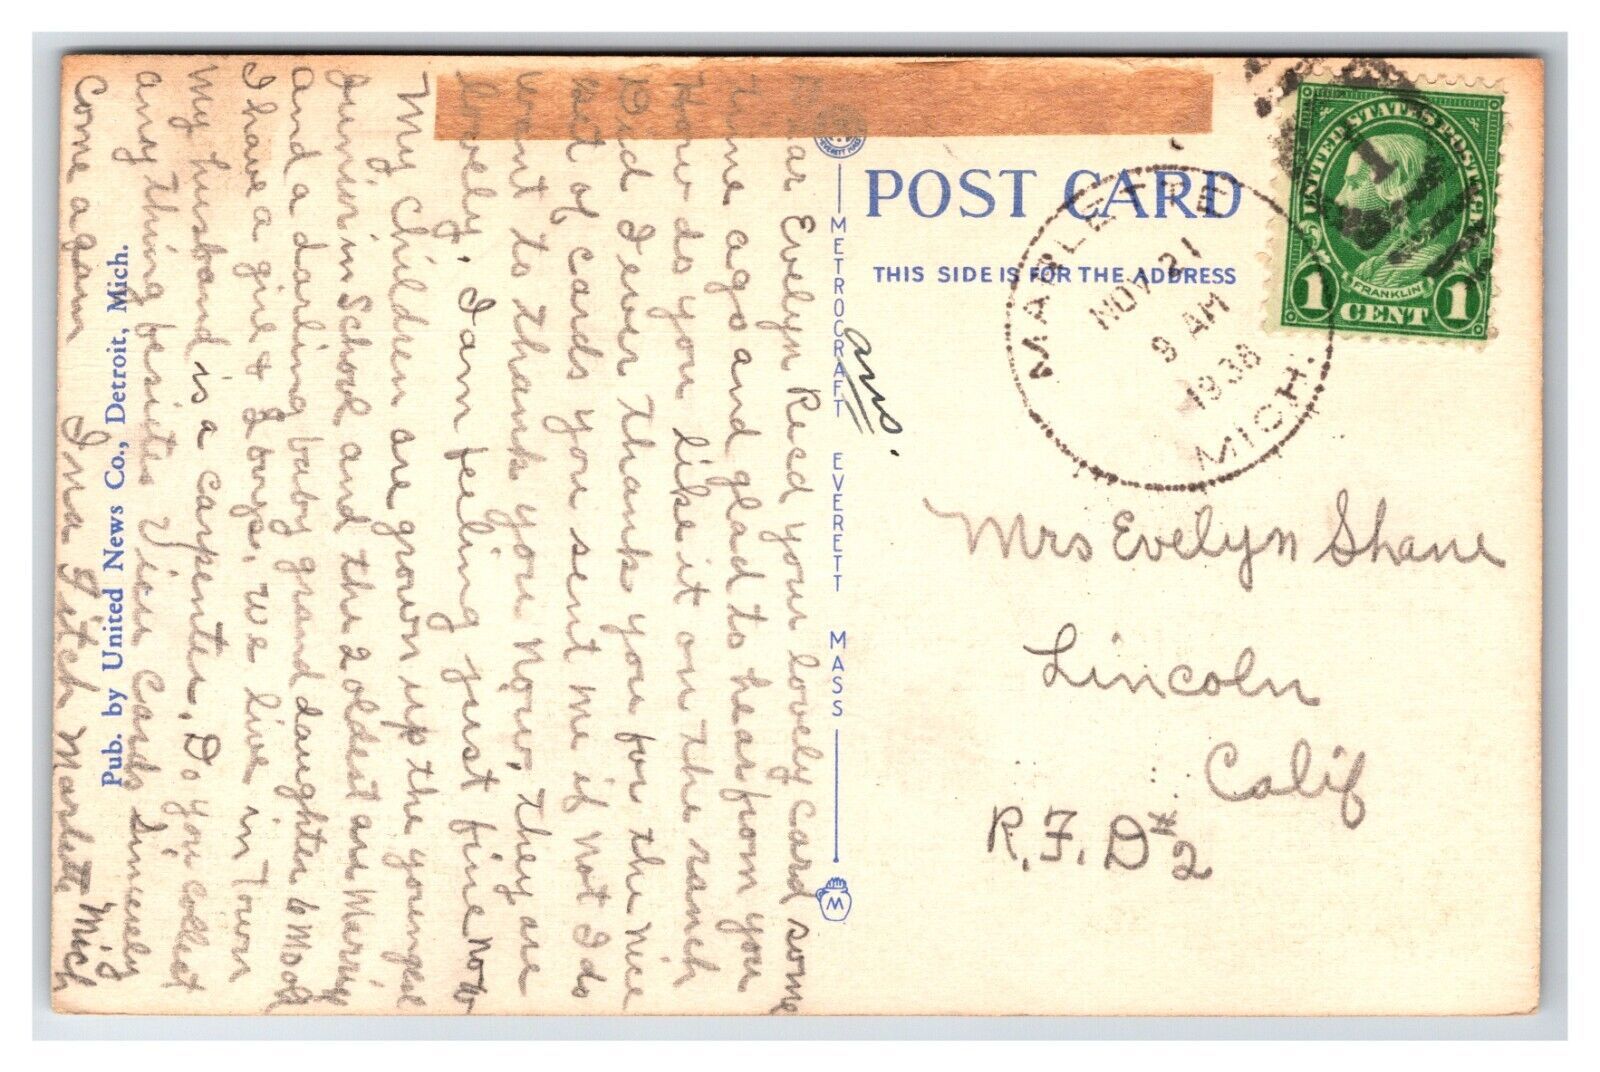 POST CARD
THIS SIDE IS FOR THE ADDRESS
MARLETTE
NOV 21
9 AM
1938
MICH.
UNITED STATES POSTAGE
1
FRANKLIN
1 CENT 1
METROCRAFT EVERETT MASS
M
ans.
Mrs Evelyn Shane
Lincoln
Calif
R.F.D #2
Dear Evelyn Recd your lovely card some
time ago and glad to hear from you
How do you like it on the ranch
Did I ever thank you for the nice
set of cards you sent me if not I do
want to thank you now, they are
lovely. I am feeling just fine now
My children are grown up the youngest
Junior in School and the 2 oldest are
and a darling baby grand daughter 6 Mo old
I have a girl & 2 boys, we live in Town
My husband is a carpenter. Do you collect
any thing besites View Cards Sincerely
Come again Ina Fitch Marlette Mich
Pub. by United News Co., Detroit, Mich.